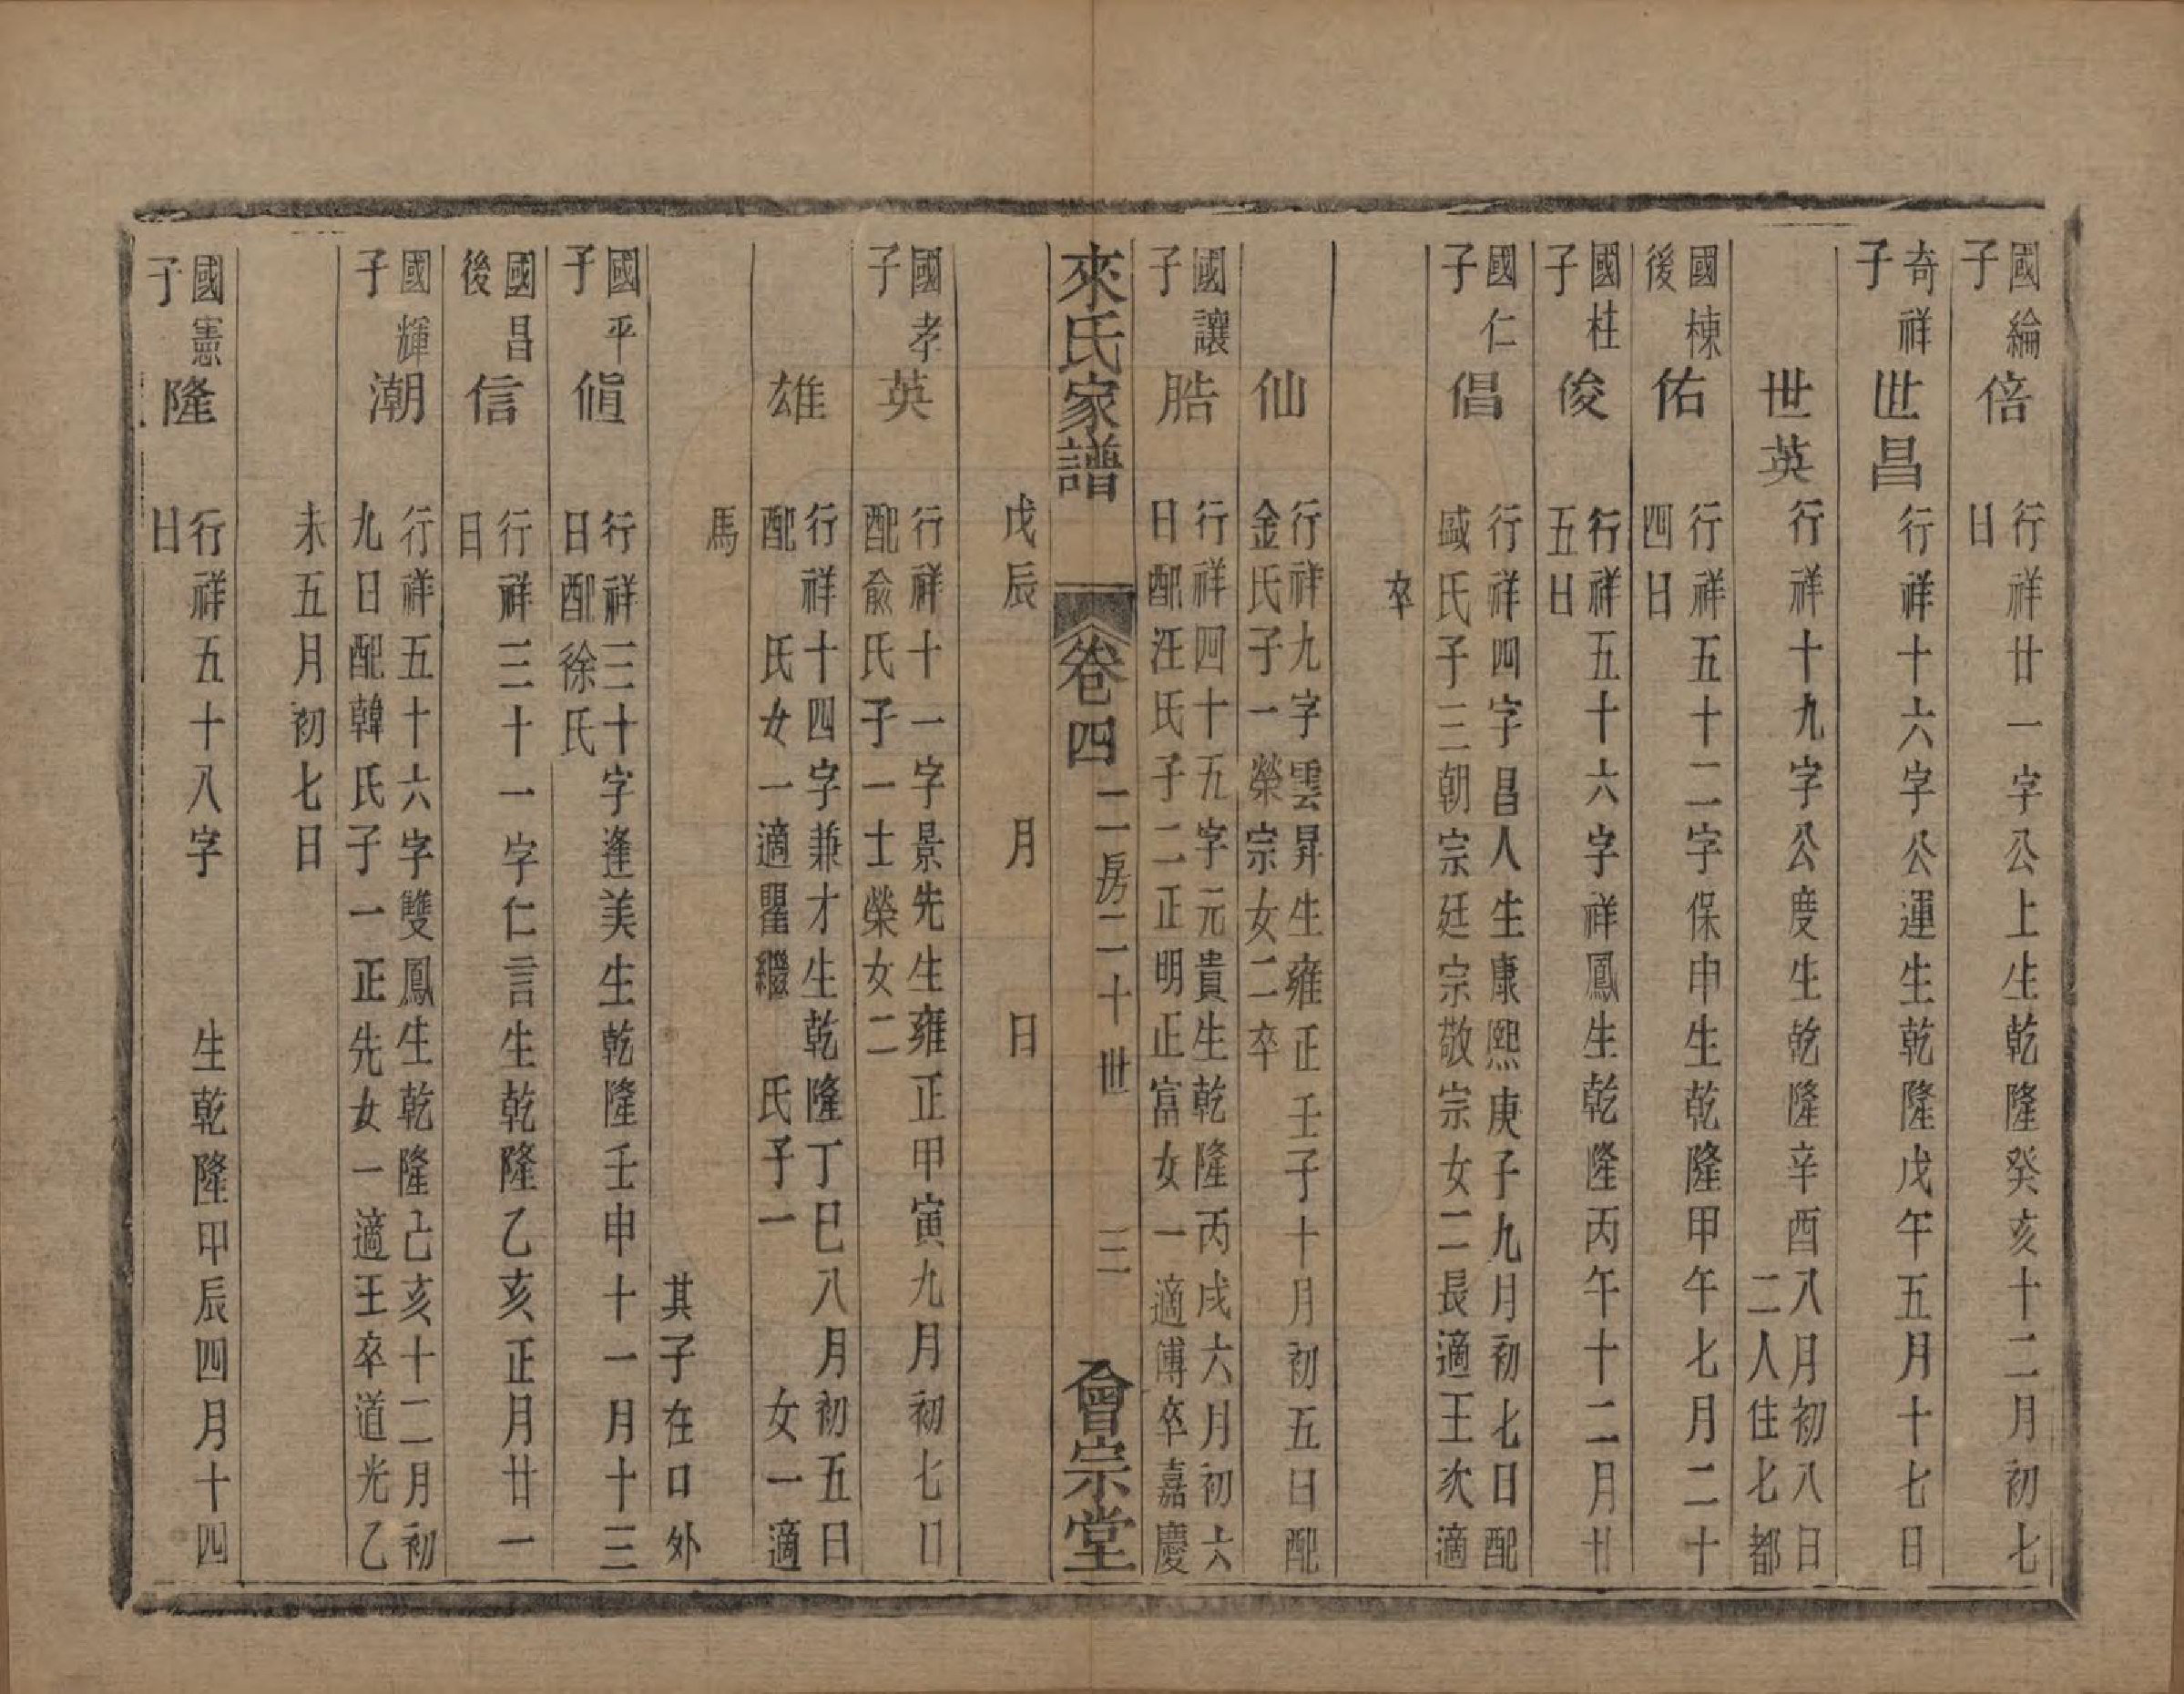 國綸子
倍
行祥廿一字公上生乾隆癸亥十二月初七
日
奇祥子
世昌
行祥十六字公運生乾隆戊午五月十七日
世英
行祥十九字公度生乾隆辛酉八月初八日
二人住七都
國棟後
佑
行祥五十二字保申生乾隆甲午七月二十
四日
國柱子
俊
行祥五十六字祥鳳生乾隆丙午十二月廿
五日
國仁子
倡
行祥四字昌人生康熙庚子九月初七日配
盛氏子三朝宗廷宗敬宗女二長適王次適
卒
仙
行祥九字雲昇生雍正壬子十月初五日配
金氏子一榮宗女二卒
國讓子
晧
行祥四十五字元貴生乾隆丙戌六月初六
日配汪氏子二正明正富女一適傅卒嘉慶
來氏家譜
卷四
二房二十世
三
會宗堂
戊辰 月 日
國孝子
英
行祥十一字景先生雍正甲寅九月初七日
配兪氏子一士榮女二
雄
行祥十四字兼才生乾隆丁巳八月初五日
配 氏女一適瞿繼 氏子一 女一適
馬
其子在口外
國平子
偵
行祥三十字逢美生乾隆壬申十一月十三
日配徐氏
國昌後
信
行祥三十一字仁言生乾隆乙亥正月廿一
日
國輝子
潮
行祥五十六字雙鳳生乾隆己亥十二月初
九日配韓氏子一正先女一適王卒道光乙
未五月初七日
國憲子
隆
行祥五十八字 生乾隆甲辰四月十四
日